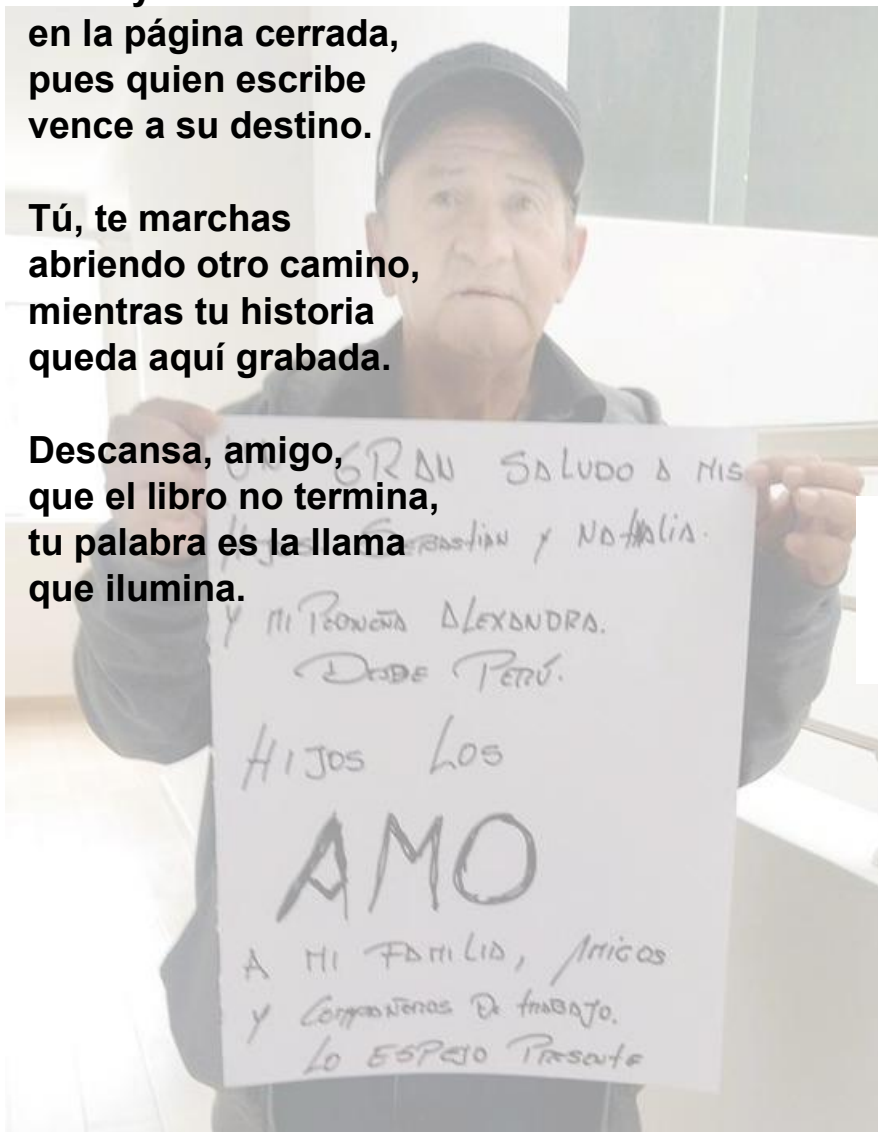 en la página cerrada,
pues quien escribe
vence a su destino.
Tú, te marchas
abriendo otro camino,
mientras tu historia
queda aquí grabada.
Descansa, amigo,
que el libro no termina,
tu palabra es la llama
que ilumina.
UN GRAN SALUDO A MIS
HIJOS SEBASTIAN Y NATHALIA.
Y MI PEQUEÑA ALEXANDRA.
DESDE PERÚ.
HIJOS LOS
AMO
A MI FAMILIA, AMIGOS
Y COMPAÑEROS DE TRABAJO.
LO ESPEJO PRESENTE